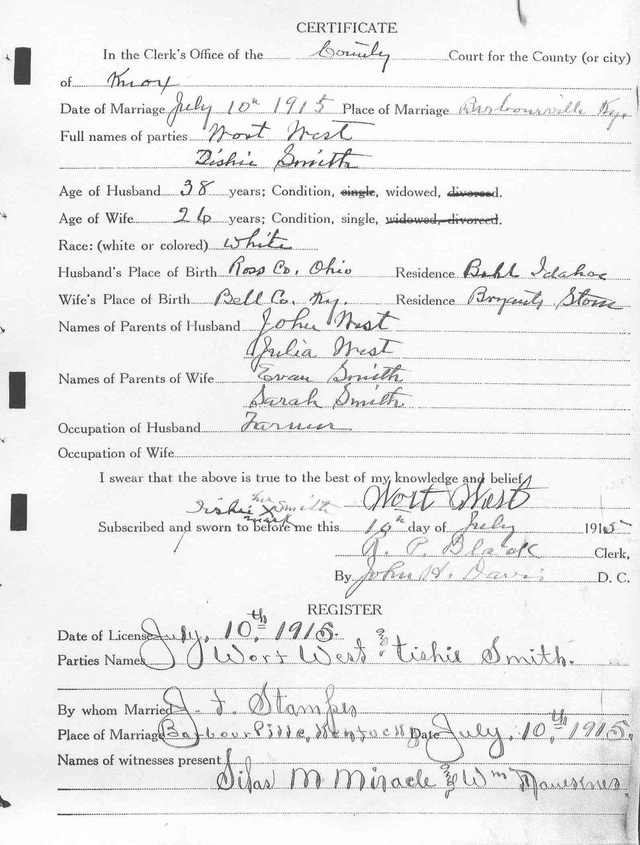 CERTIFICATE
In the Clerk's Office of the County Court for the County (or city)
of Knox
Date of Marriage July 10th 1915 Place of Marriage Barbourville Ky.
Full names of parties Wort West
Tishie Smith
Age of Husband 38 years; Condition, single, widowed, divorced.
Age of Wife 26 years; Condition, single, widowed, divorced.
Race: (white or colored) White
Husband's Place of Birth Ross Co. Ohio Residence Buhl Idaho
Wife's Place of Birth Bell Co. Ky. Residence Bryants Store
Names of Parents of Husband John West
Julia West
Names of Parents of Wife Evan Smith
Sarah Smith
Occupation of Husband Farmer
Occupation of Wife
I swear that the above is true to the best of my knowledge and belief
Wort West
Tishie her x mark Smith
Subscribed and sworn to before me this 10th day of July 1915
Black Clerk,
By John H. Davis D. C.
REGISTER
Date of License July, 10th, 1915.
Parties Names Wort West & Tishie Smith.
By whom Married J. F. Stamper
Place of Marriage Barbourville, Kentucky Date July, 10th, 1915.
Names of witnesses present
Silas M Miracle & Wm